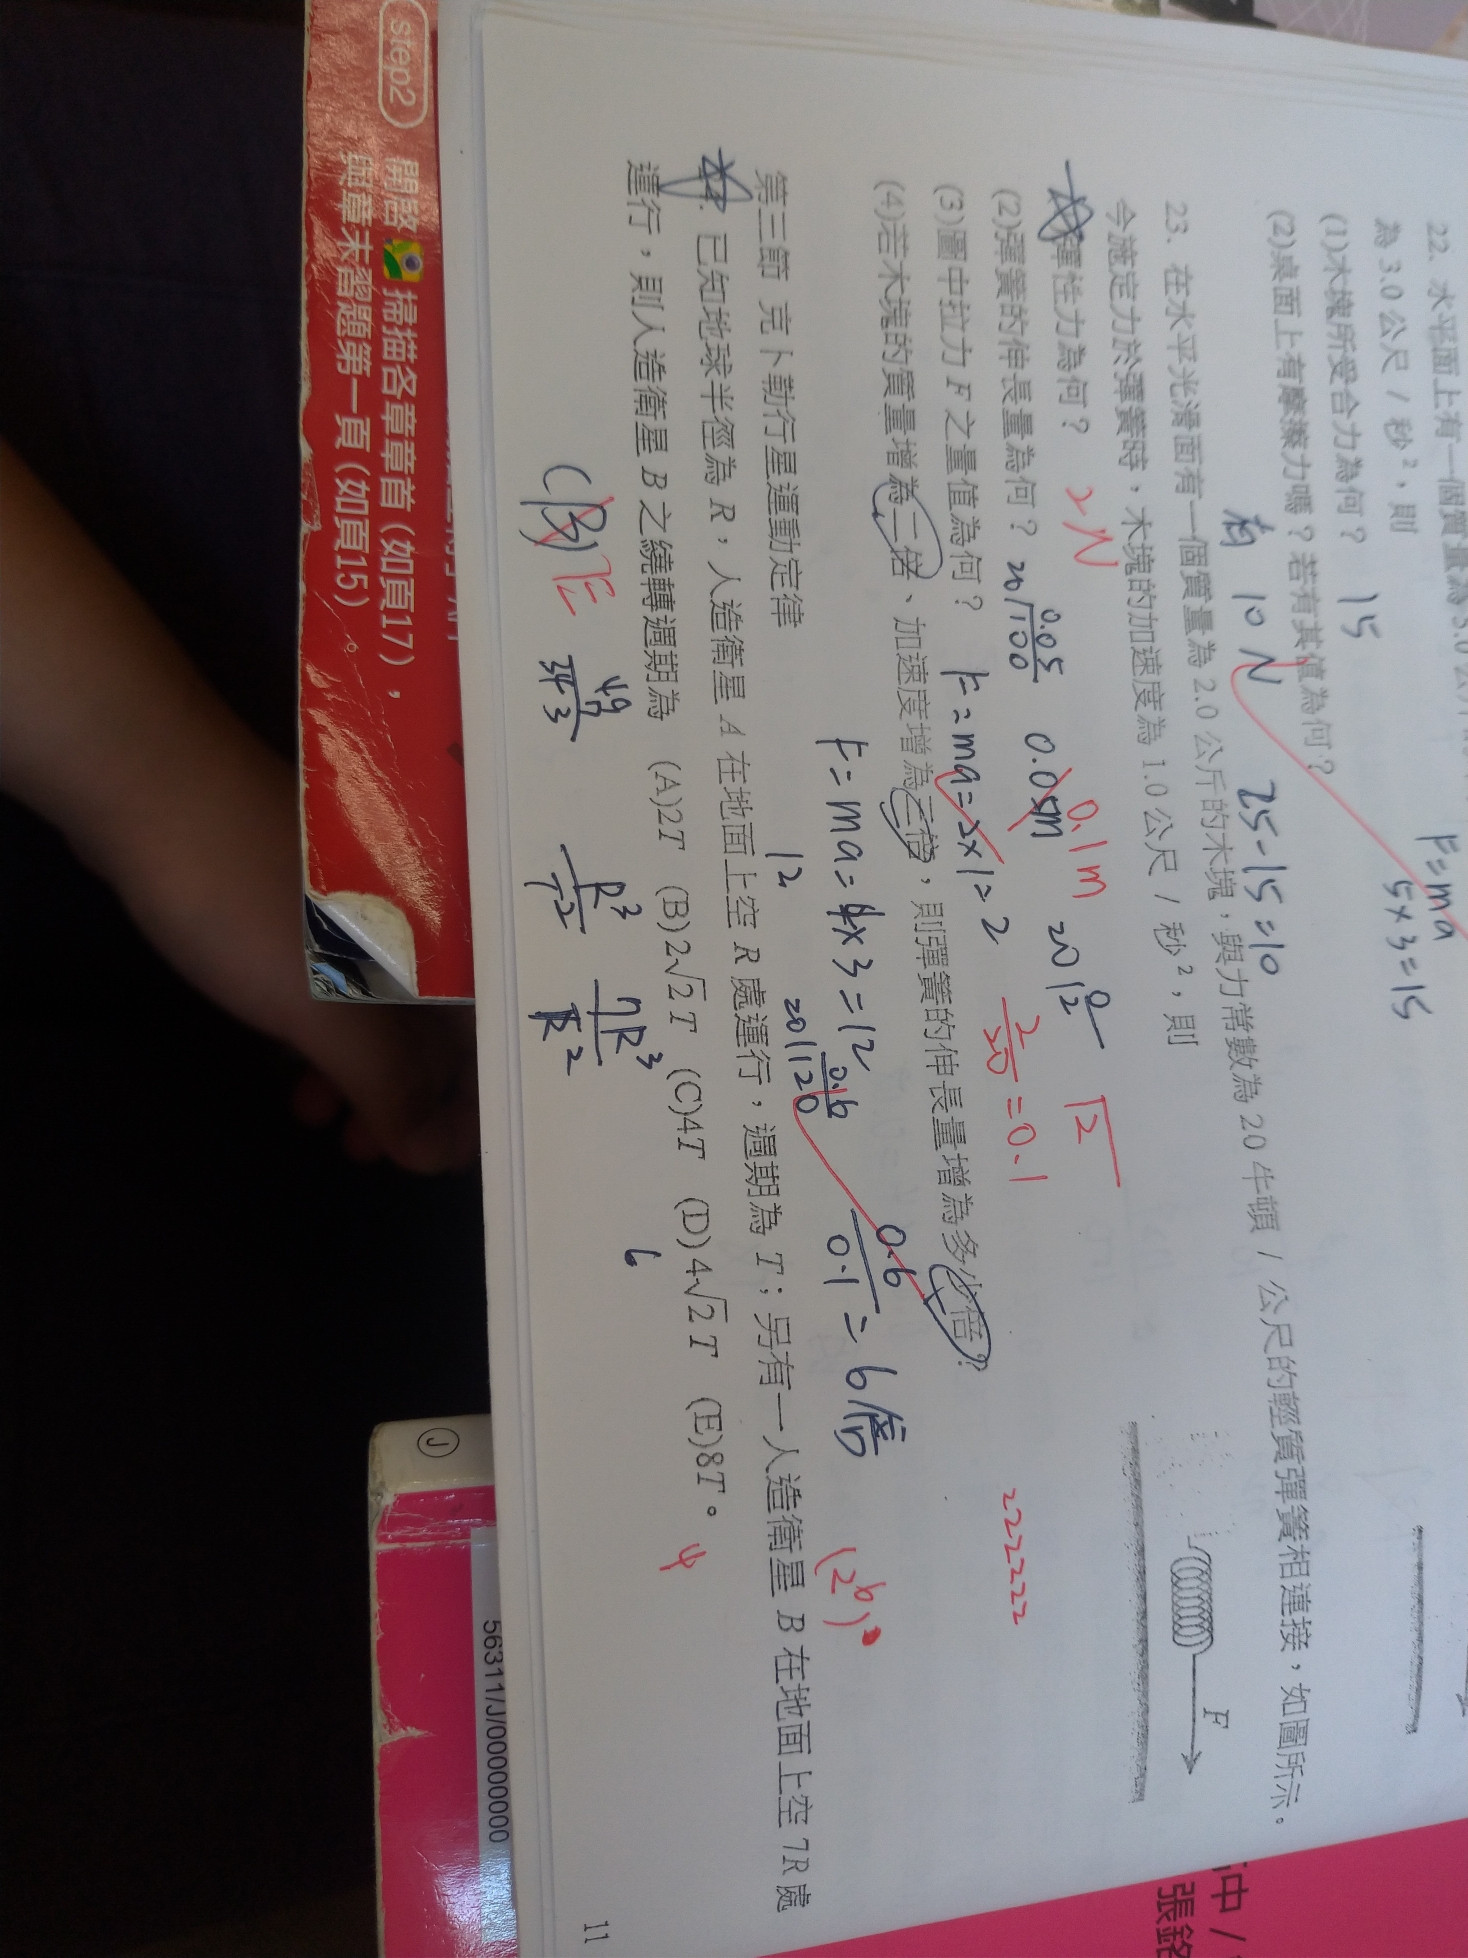 22. 水平面上有一個質量為5.0公
為 3.0 公尺 / 秒²，則
F=ma
5×3=15
(1)木塊所受合力為何？ 15
(2)桌面上有摩擦力嗎？若有其值為何？
有 10 N 25-15=10
23. 在水平光滑面有一個質量為 2.0 公斤的木塊，與力常數為 20 牛頓 / 公尺的輕質彈簧相連接，如圖所示。
今施定力於彈簧時，木塊的加速度為 1.0 公尺 / 秒²，則
F
彈性力為何？ 2N
0.1m
(2)彈簧的伸長量為何？ 20 100 0.05 0.05m 20 2 0
2/20=0.1
222222
(3)圖中拉力 F 之量值為何？ F=ma=2×1=2
(4)若木塊的質量增為二倍、加速度增為三倍，則彈簧的伸長量增為多少倍？
F=ma=4×3=12
12 20 120 0.6
0.6/0.1=6倍
(2⁶)
第三節 克卜勒行星運動定律
已知地球半徑為 R，人造衛星 A 在地面上空 R 處運行，週期為 T；另有一人造衛星 B 在地面上空 7R 處
運行，則人造衛星 B 之繞轉週期為 (A)2T (B)2√2T (C)4T (D)4√2T (E)8T。
4
6
(B) E
49
R³/T²
7R³/R²
11
step2
開啓 掃描各章章首（如頁17），
與章末習題第一頁（如頁15）。
J
56311/J/00000000
中 /
張銘